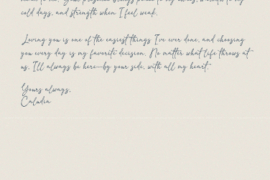 cold days, and strength when I feel weak.
Loving you is one of the easiest things I've ever done, and choosing
you every day is my favorite decision. No matter what life throws at
us, I'll always be here—by your side, with all my heart.
Yours always,